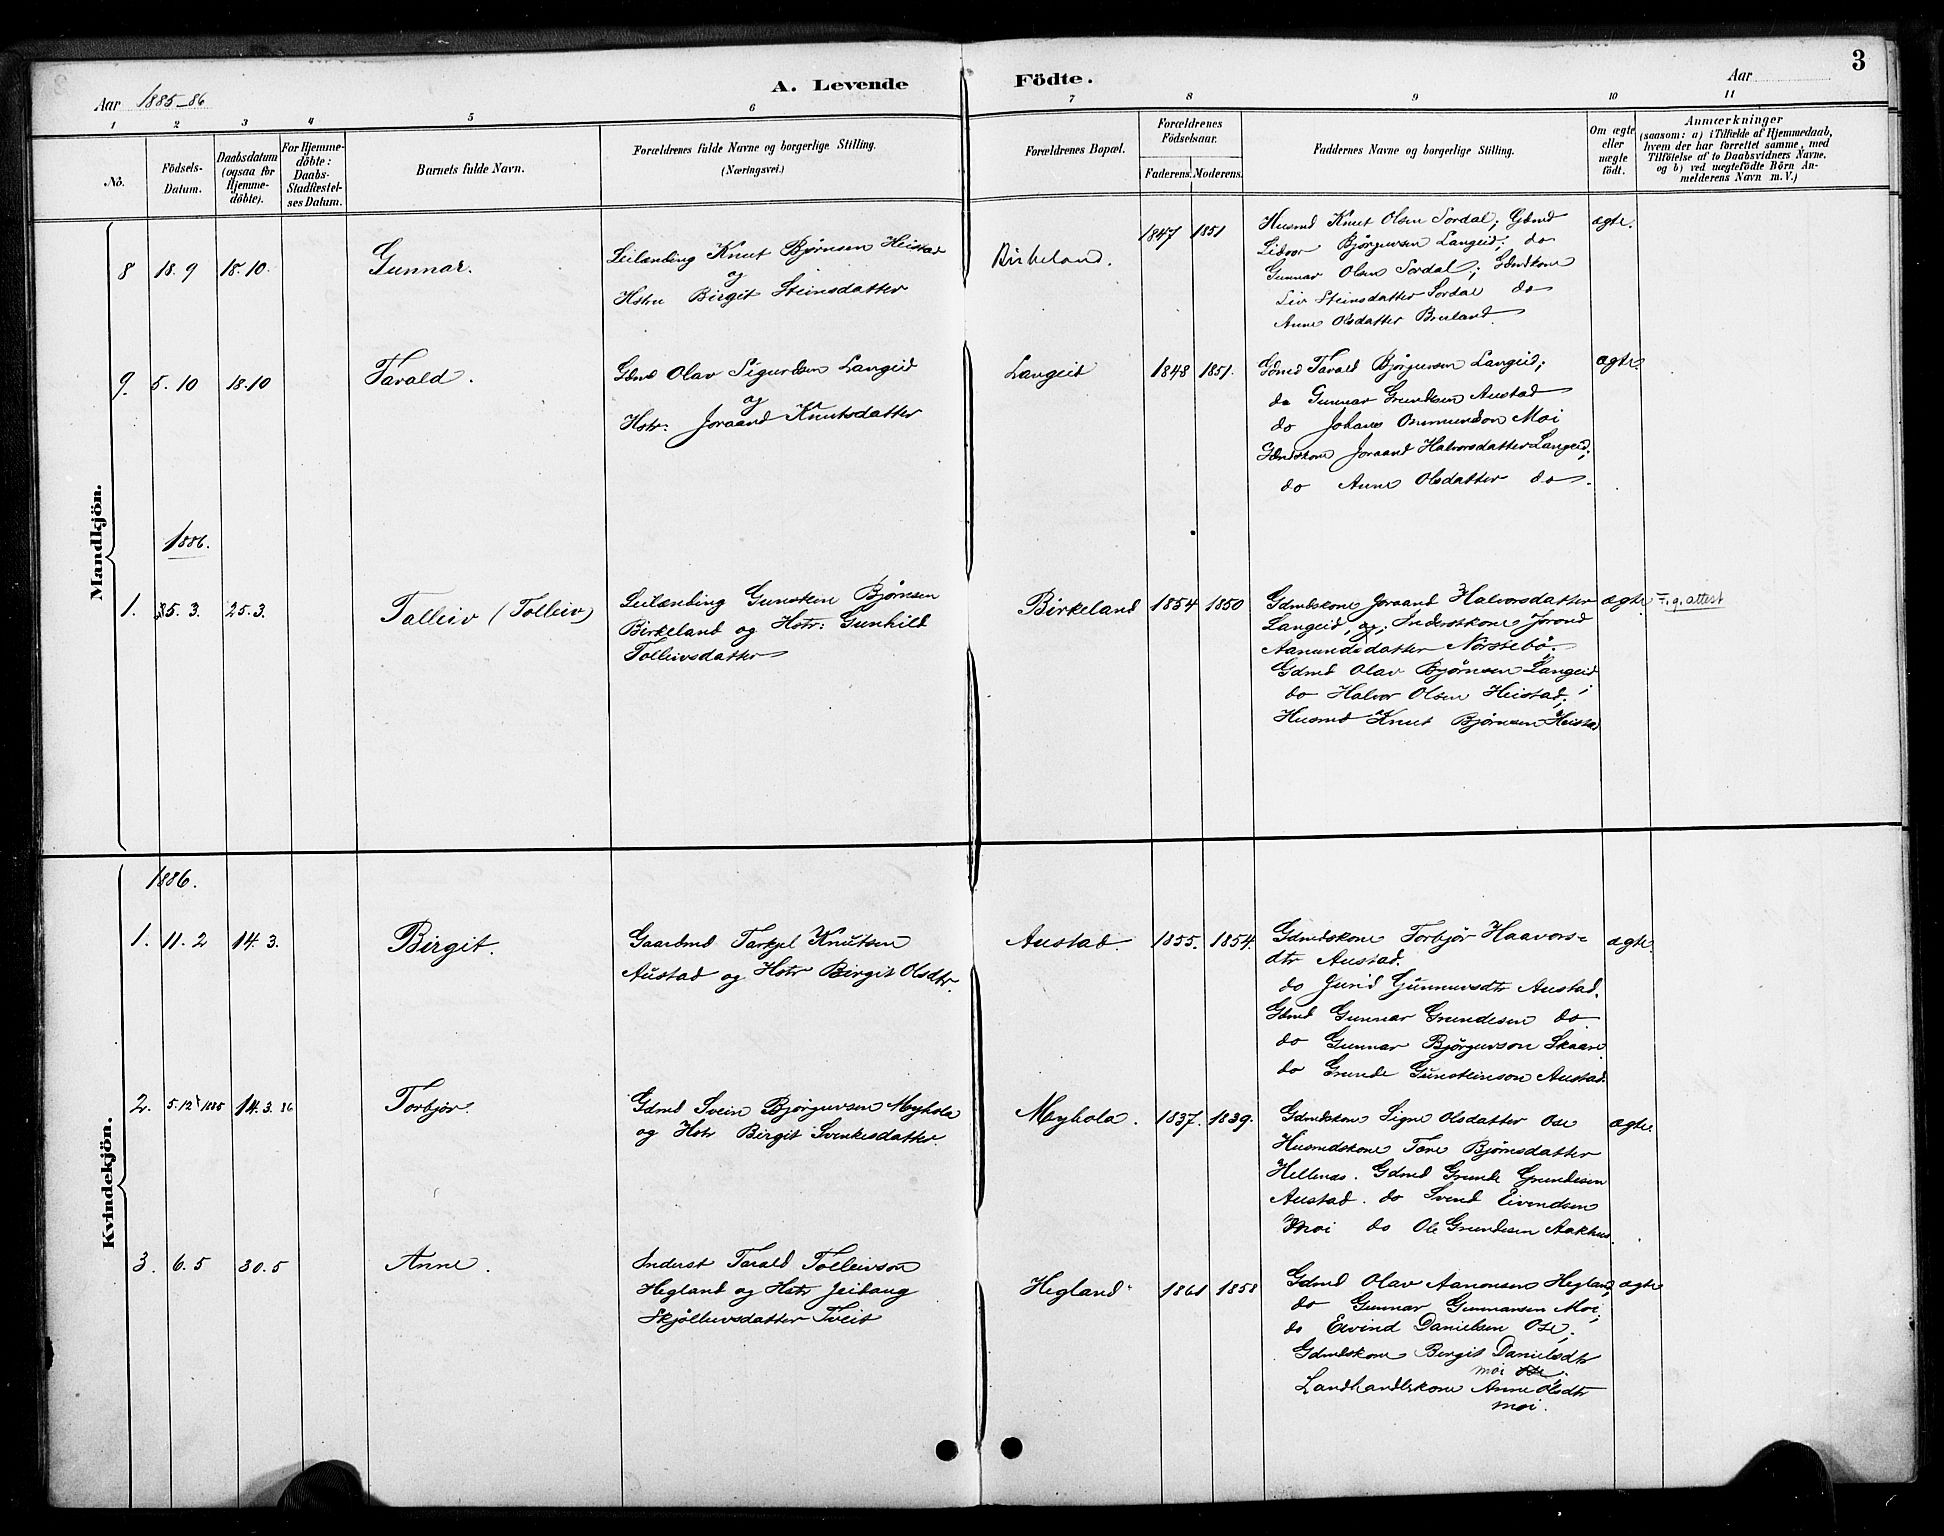 3
Aar 1885-86
A. Levende Födte.
Aar
1 2 3 4 5 6 7 8 9 10 11
No.
Födsels-Datum.
Daabsdatum (ogsaa for Hjemme-döbte).
For Hjemme-döbte: Daabs-Stadfæstel-ses Datum.
Barnets fulde Navn.
Forældrenes fulde Navne og borgerlige Stilling.
(Næringsvei.)
Forældrenes Bopæl.
Forældrenes Födselsaar.
Faderens. Moderens.
Faddernes Navne og borgerlige Stilling.
Om ægte eller uægte födt.
Anmærkninger
(saasom: a) i Tilfælde af Hjemmedaab,
hvem der har forrettet samme, med
Tilföielse af to Daabsvidners Navne,
og b) ved uægtefödte Börn An-
melderens Navn m. V.)
Mandkjön.
8 18.9 18.10. Gunnar.
Leilænding Knut Bjørnsen Heistad
og
Hstru Birgit Steinsdatter
Birkeland. 1847 1851
Husmd Knut Olsen Sordal; Gdmd
Lidvor Bjørguvsen Langeid; do
Gunnar Olsen Sordal; Gdmdskone
Liv Steinsdatter Sordal do
Anne Olsdatter Breiland.
ægte.
9. 5.10 18.10 Tarald.
Gdmd Olav Sigurdsen Langeid
og
Hstr: Joraand Knutsdatter
Langeid 1848 1851.
Gdmd Tarald Bjørguvsen Langeid;
do Gunnar Grundesen Austad
do Johans Onmundson Moi
Gdmdskone Joraand Halvorsdatter Langeid;
do Anne Olsdatter do.
ægte.
1886.
1. 5.3. 25.3. Talleiv (Tolleiv)
Leilænding Gunsten Bjørnsen
Birkeland og Hstr: Gunhild
Tolleivsdatter
Birkeland 1854 1850
Gdmdskone Joraand Halvorsdatter
Langeid, og; Inderstkone Jorond
Aanundsdatter Norstebö.
Gdmd Olav Bjørnsen Langeid
do Halvor Olsen Heistad;
Husmd Knut Bjørnsen Heistad
ægte. F.g. attest
Kvindekjön.
1886.
1. 11.2 14.3. Birgit.
Gaardmd Tarkjel Knutsen
Austad og Hstr Birgit Olsdtr.
Austad. 1855. 1854.
Gdmdskone Torbjør Haavors-
dtr Austad.
do Jurid Gunnuvsdtr Austad.
Gdmd Gunnar Grundesen do.
do Gunnar Bjørguvson Skaare
do Grunde Gunsteinson Austad.
ægte.
2. 5.12 1885 14.3.86 Torbjør.
Gdmd Svein Bjørguvsen Myhola
og Hstr Birgit Svenkesdatter.
Myhola. 1837. 1839.
Gdmdskone Signe Olsdatter Ose
Husmdskone Tone Bjørnsdatter
Hellenes. Gdmd Grunde Grundesen
Austad. do Svend Eivendsen
Moi do Ole Grundesen Aakhus.
ægte.
3. 6.5 30.5 Anne.
Inderst Tarald Tolleivson
Hegland og Hstr Jeidaug
Skjølluvsdatter Tveit
Hegland. 1861 1858
Gdmd Olav Aanonsens Hegland,
do Gunnar Gunnarsen Moi;
do Eivind Danielsen Ose;
Gdmdskone Birgit Danielsdtr
Moi Ose.
Landhandlskone Anne Olsdtr
Moi.
ægte